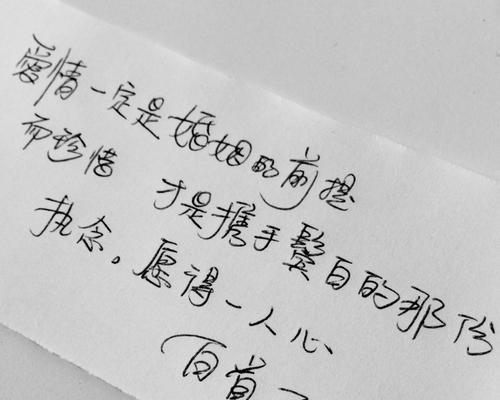 愛情一定是婚姻的前提
而珍惜 才是携手鬓白的那份
执念。愿得一人心
白首